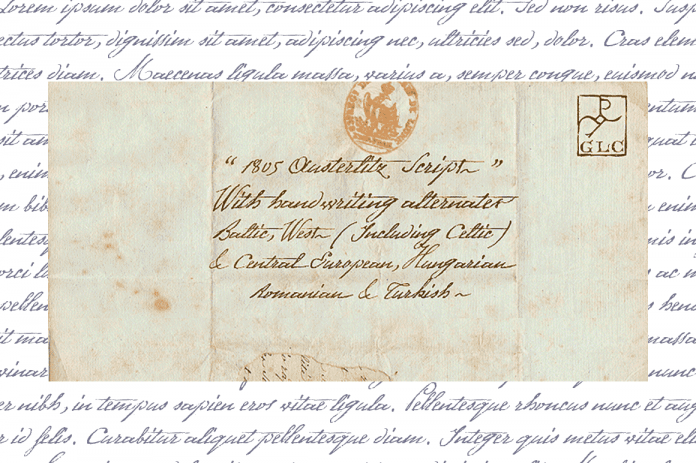 Lorem ipsum dolor sit amet, consectetur adipiscing elit. Sed non risus. Susp
ectus tortor, dignissim sit amet, adipiscing nec, ultricies sed, dolor. Cras elem
trices diam. Maecenas ligula massa, varius a, semper congue, euismod n
P
GLC
“ 1805 Austerlitz Script ”
With handwriting alternates
Baltic, West (Including Celtic)
& Central European, Hungarian
Romanian & Turkish
er nibh, in tempus sapien eros vitae ligula. Pellentesque rhoncus nunc et aug
r id felis. Curabitur aliquet pellentesque diam. Integer quis metus vitae eli